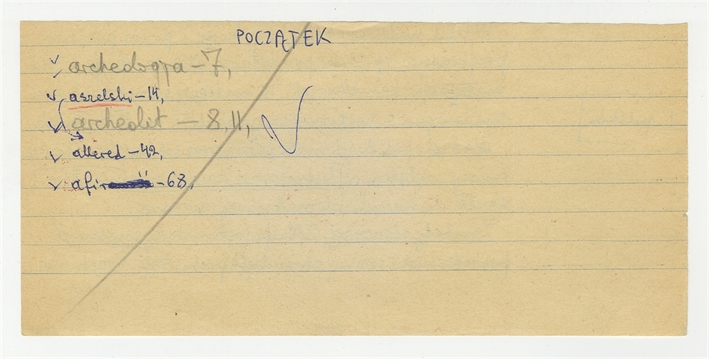 POCZĄTEK
archeologia – 7,
aszelski – 14,
archeolit – 8, 11,
allered – 42,
afi – 68,